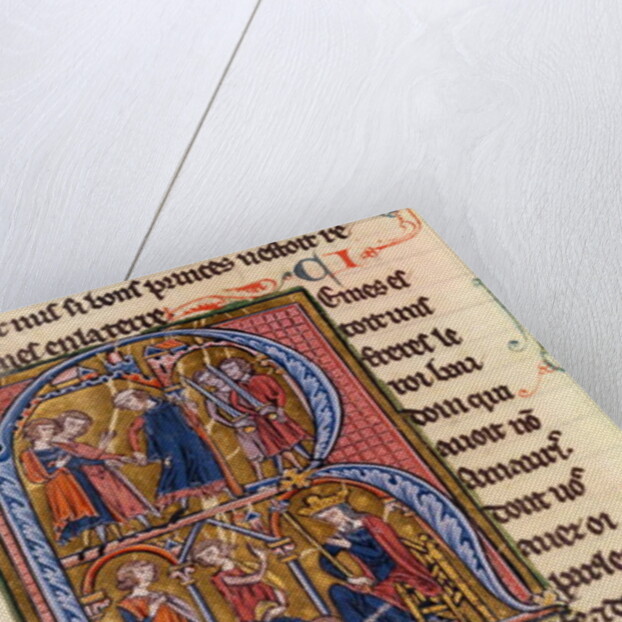 nus si bons princes nestoit re
mes enlaterre
emes es
toit uns
freres le
roi bau
doin qui
auoit nō
dont
auez oi